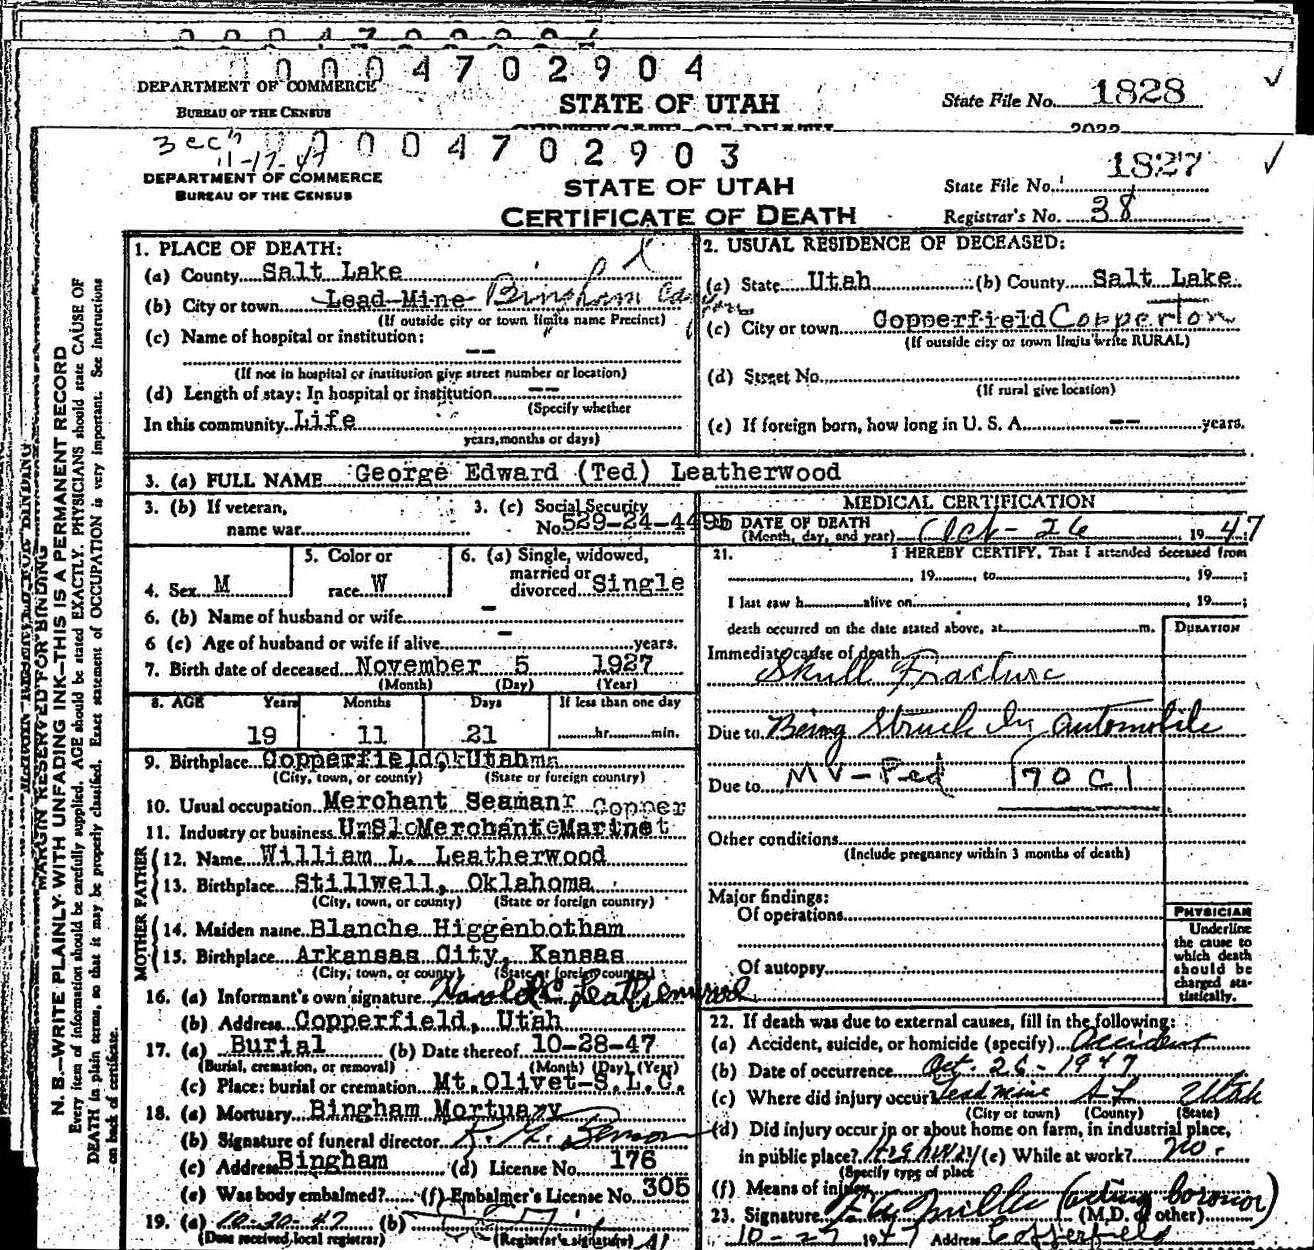 0 0 0 4 7 0 2 9 0 4
DEPARTMENT OF COMMERCE
BUREAU OF THE CENSUS
STATE OF UTAH
State File No. 1828
CERTIFICATE OF DEATH
3 0 0 0 4 7 0 2 9 0 3
11-17-47
DEPARTMENT OF COMMERCE
BUREAU OF THE CENSUS
STATE OF UTAH
CERTIFICATE OF DEATH
State File No. 1827
Registrar's No. 38
N. B.—WRITE PLAINLY WITH UNFADING INK—THIS IS A PERMANENT RECORD
MARGIN RESERVED FOR BINDING
Every item of information should be carefully supplied. AGE should be stated EXACTLY. PHYSICIANS should state CAUSE OF
DEATH in plain terms, so that it may be properly classified. Exact statement of OCCUPATION is very important. See instructions
on back of certificate.
1. PLACE OF DEATH:
(a) County Salt Lake
(b) City or town Lead Mine Bingham Canyon
(If outside city or town limits name Precinct)
(c) Name of hospital or institution:
--
(If not in hospital or institution give street number or location)
(d) Length of stay: In hospital or institution --
(Specify whether
In this community Life
years, months or days)
2. USUAL RESIDENCE OF DECEASED:
(a) State Utah (b) County Salt Lake
(c) City or town Copperfield Copperton
(If outside city or town limits write RURAL)
(d) Street No.
(If rural give location)
(e) If foreign born, how long in U. S. A. -- years.
3. (a) FULL NAME George Edward (Ted) Leatherwood
3. (b) If veteran, name war
3. (c) Social Security No. 529-24-4495
4. Sex M
5. Color or race W
6. (a) Single, widowed, married or divorced Single
6. (b) Name of husband or wife -
6 (c) Age of husband or wife if alive - years.
7. Birth date of deceased November 5 1927
(Month) (Day) (Year)
8. AGE Years Months Days If less than one day
19 11 21 hr. min.
9. Birthplace Copperfield, Utah
(City, town, or county) (State or foreign country)
10. Usual occupation Merchant Seaman Copper
11. Industry or business U. S. Merchant Marine
FATHER
12. Name William L. Leatherwood
13. Birthplace Stillwell, Oklahoma
(City, town, or county) (State or foreign country)
MOTHER
14. Maiden name Blanche Higgenbotham
15. Birthplace Arkansas City, Kansas
(City, town, or county) (State or foreign country)
16. (a) Informant's own signature Harold C Leatherwood
(b) Address Copperfield, Utah
17. (a) Burial (b) Date thereof 10-28-47
(Burial, cremation, or removal) (Month) (Day) (Year)
(c) Place: burial or cremation Mt. Olivet-S.L.C.
18. (a) Mortuary Bingham Mortuary
(b) Signature of funeral director
(c) Address Bingham (d) License No. 176
(e) Was body embalmed? (f) Embalmer's License No. 305
19. (a) 10-30-47 (b)
(Date received local registrar) (Registrar's signature)
MEDICAL CERTIFICATION
20. DATE OF DEATH
(Month, day, and year) Oct-26 1947
21. I HEREBY CERTIFY, That I attended deceased from
, 19 , to , 19 ;
I last saw h alive on , 19 ;
death occurred on the date stated above, at m.
DURATION
Immediate cause of death
Skull Fracture
Due to Being Struck by Automobile
Due to MV-Ped 170 C1
Other conditions
(Include pregnancy within 3 months of death)
Major findings:
Of operations
Of autopsy
PHYSICIAN
Underline
the cause to
which death
should be
charged sta-
tistically.
22. If death was due to external causes, fill in the following:
(a) Accident, suicide, or homicide (specify) Accident
(b) Date of occurrence Oct. 26-1947
(c) Where did injury occur? Lead mine S L Utah
(City or town) (County) (State)
(d) Did injury occur in or about home on farm, in industrial place,
in public place? Highway (e) While at work? no.
(Specify type of place
(f) Means of injury
23. Signature (acting coroner)
(M.D. or other)
10-27 1947 Address Copperfield